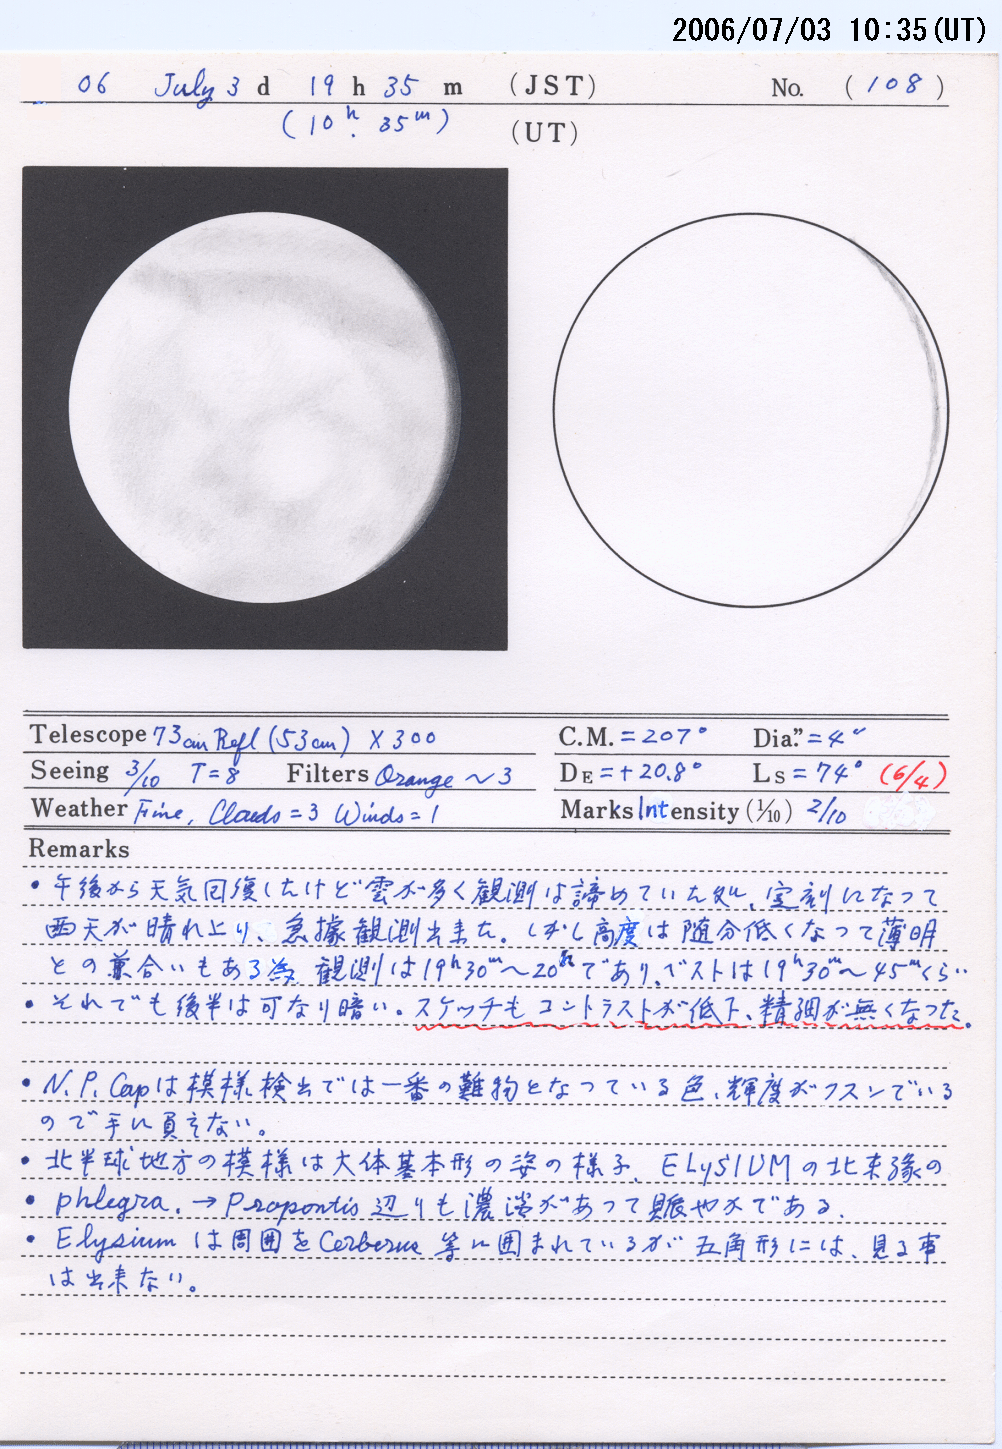 2006/07/03 10:35(UT)
06 July 3 d 19 h 35 m (JST) No. (108)
(10h. 35m) (UT)
Telescope 73cm Refl (53cm) X300
C.M. = 207° Dia." = 4"
Seeing 3/10 T=8 Filters Orange ~3
DE = +20.8° Ls = 74° (6/4)
Weather Fine, Clouds=3 Winds=1
Marks Intensity (1/10) 2/10
Remarks
・午後から天気回復したけど雲が多く観測は諦めていた処、定刻になって
西天が晴れ上り、急據観測出来た。しかし高度は随分低くなって薄明
との兼合いもある為 観測は19h30m～20hであり、ベストは19h30m～45mくらい
・それでも後半は可なり暗い。スケッチもコントラストが低下、精細が無くなった。
・N.P.Capは模様検出では一番の難物となっている色、輝度がクスンでいる
ので手に負えない。
・北半球地方の模様は大体基本形の姿の様子、ELySIUMの北東縁の
・phlegra.→Propontis辺りも濃淡があって賑やかである.
・Elysiumは周囲をCerberus 等に囲まれているが五角形には、見る事
は出来ない。